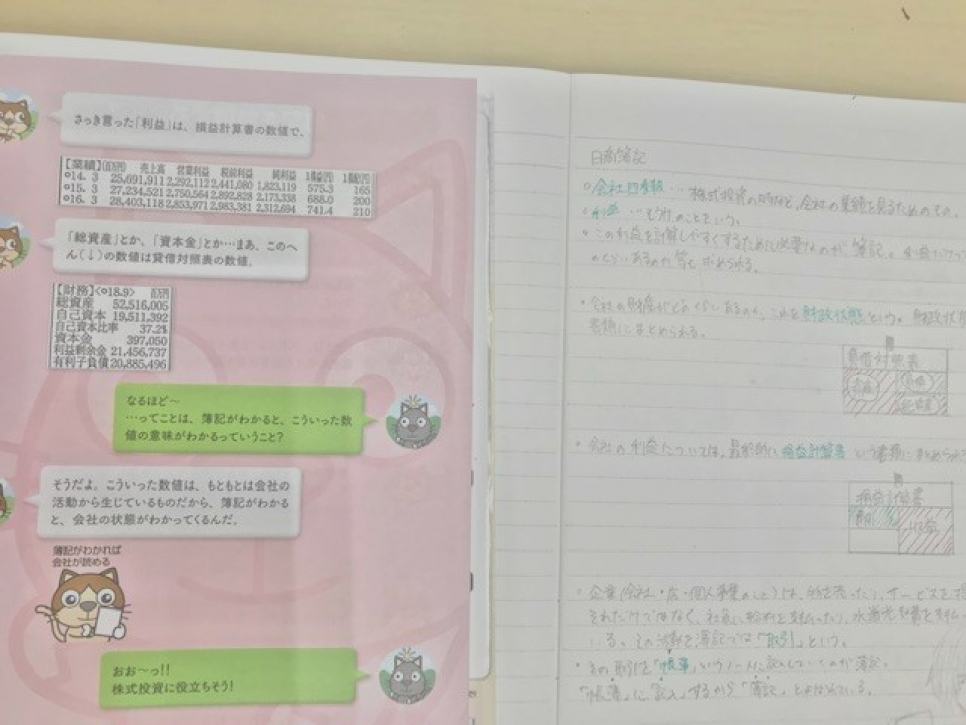 さっき言った「利益」は、損益計算書の数値で、
【業績】(百万円) 売上高 営業利益 税前利益 純利益 1株益(円) 1株配(円)
○14. 3 25,691,911 2,292,112 2,441,080 1,823,119 575.3 165
○15. 3 27,234,521 2,750,564 2,892,828 2,173,338 688.0 200
○16. 3 28,403,118 2,853,971 2,983,381 2,312,694 741.4 210
「総資産」とか、「資本金」とか…まあ、このへ
ん(↓)の数値は貸借対照表の数値。
【財務】<○18.9> 百万円
総資産 52,516,005
自己資本 19,511,392
自己資本比率 37.2%
資本金 397,050
利益剰余金 21,456,737
有利子負債 20,885,496
なるほど〜
…ってことは、簿記がわかると、こういった数
値の意味がわかるっていうこと?
そうだよ。こういった数値は、もともとは会社の
活動から生じているものだから、簿記がわかる
と、会社の状態がわかってくるんだ。
簿記がわかれば
会社が読める
おお〜っ!!
株式投資に役立ちそう!
日商簿記
会社四季報… 株式投資の 会社の業績を見るためのもの。
利益… もうけのことをいう。
・この利益を計算しやすくするために必要なのが、簿記。
のくらいあるのか 求められる。
・会社の財産がどのくらいあるのか、これを財政状態という。財政状
書類にまとめられる。
貸借対照表
資産 負債
・会社の利益については、最終的に損益計算書という書類にまとめられ
損益計算書
費用 収益
・企業(会社・店・個人事業のこと)は、物を売ったり、サービスを
それだけではなく、社員に給料を支払ったり、水道光熱費を支払
いる。その活動を簿記では「取引」という。
・その取引を「帳簿」というノートに記入していくのが簿記。
「帳簿」に「記入」するから「簿記」とよばれている。